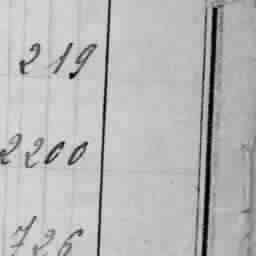 219
2200
726